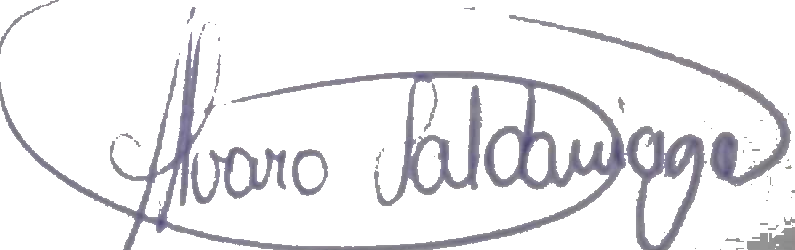 Alvaro Saldarriaga